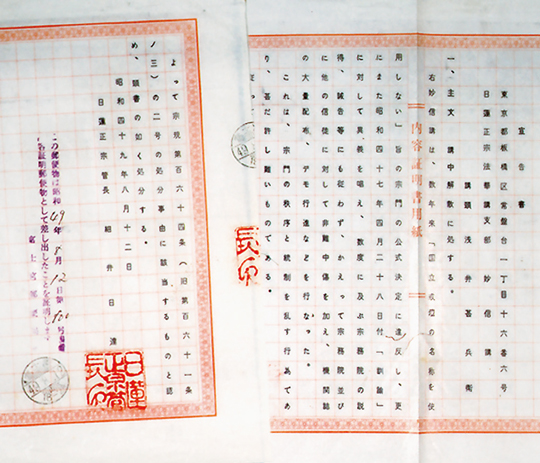 宣告書
東京都板橋区常盤台一丁目十六番六号
日蓮正宗法華講支部 妙信講
講頭 浅井甚兵衛
一、主文 講中解散に処する。
右妙信講は、数年来「国立戒壇の名称を使
内容証明書用紙
用しない」旨の宗門の公式決定に違反し、更
にまた昭和四十七年四月二十八日付「訓諭」
に対して異義を唱え、数度に及ぶ宗務院の説
得、誡告等にも従わず、かえって宗務院並び
に他の信徒に対して非難中傷を加え、機関誌
の大量配布、デモ行進などを行なった。
これは、宗門の秩序と統制を乱す行為であ
り、甚だ許し難いものである。
よって宗規第百六十四条(旧第百六十一条
ノ三)の二号の処分事由に該当するものと認
め、頭書の如く処分する。
昭和四十九年八月十二日
日蓮正宗管長 細井日達
この郵便物は昭和49年8月12日第100号書留
内容証明郵便物として差し出したことを証明します
富士宮郵便局